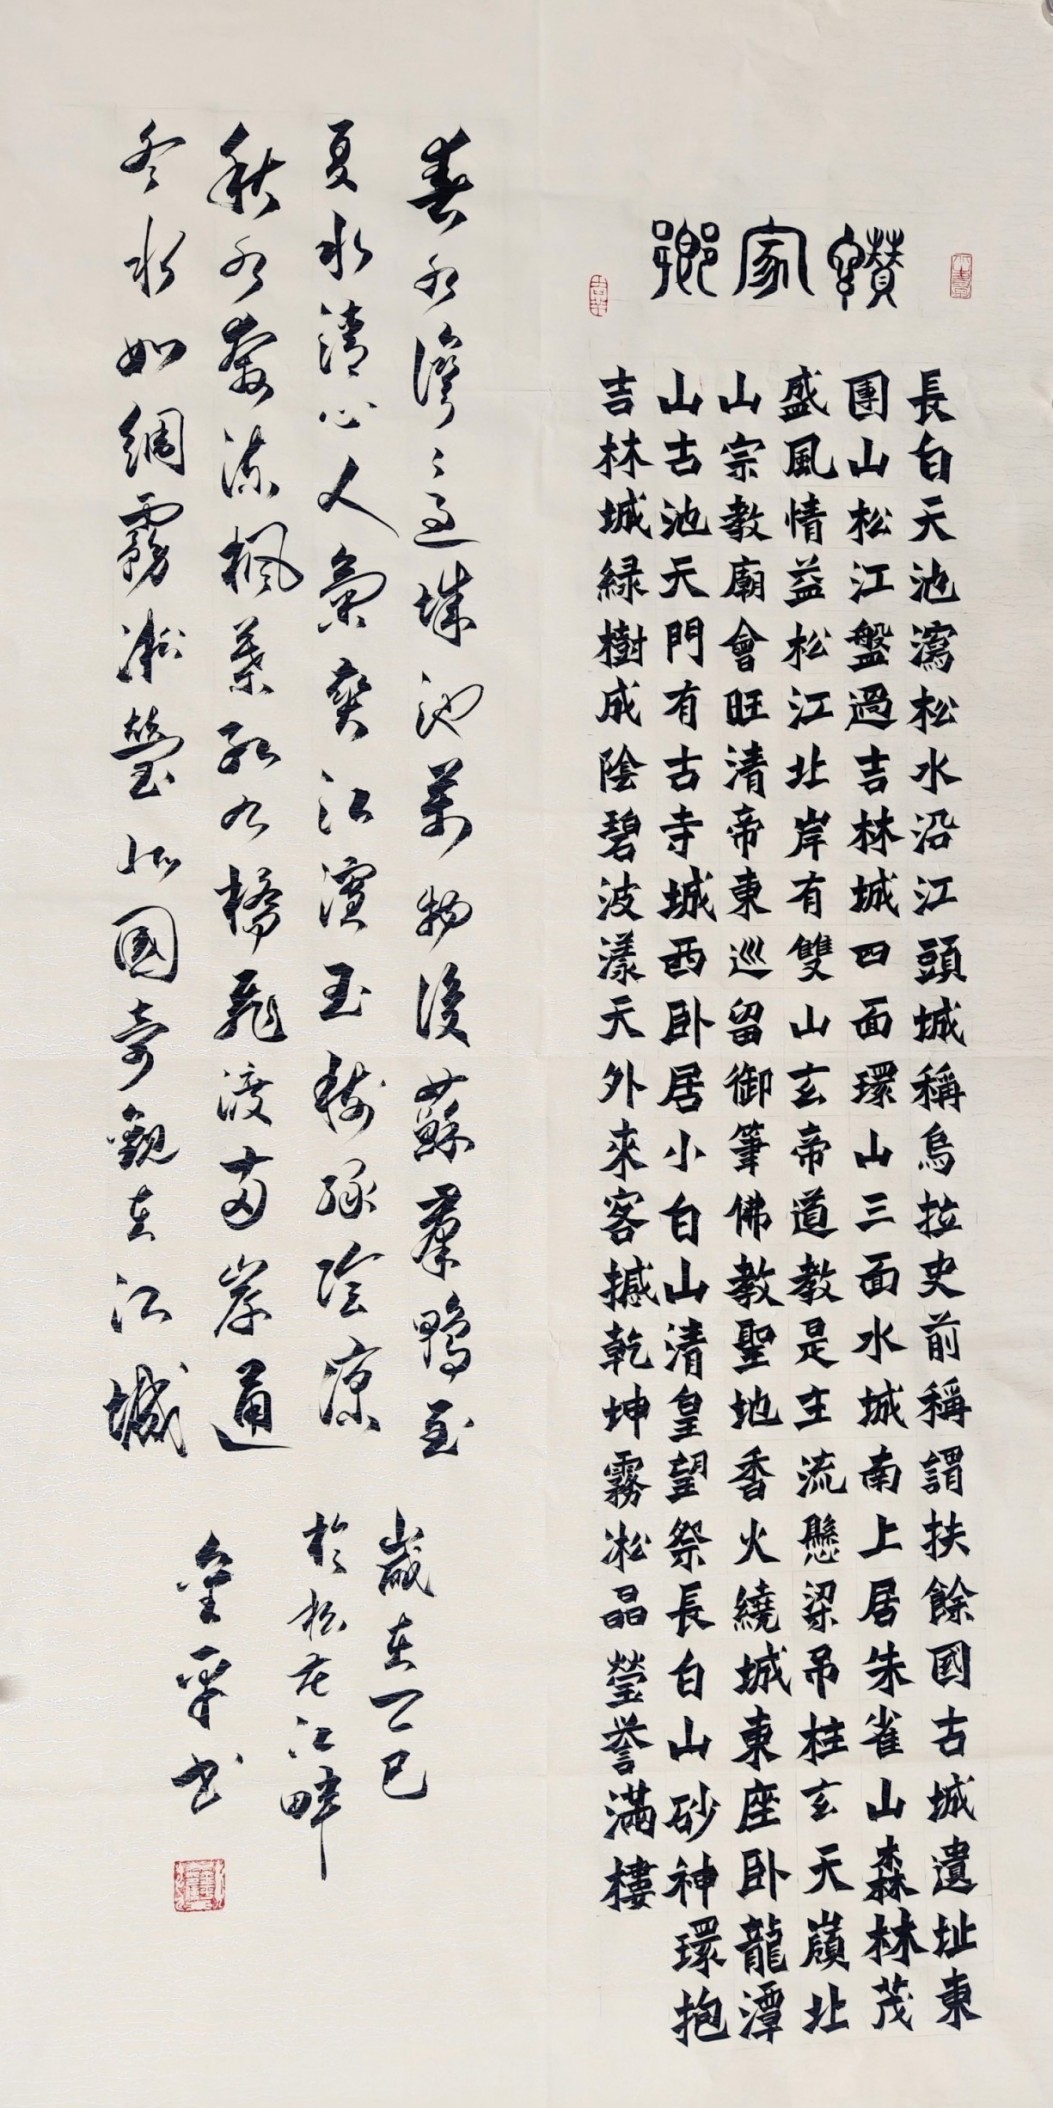 讚家鄉
長白天池瀉松水沿江頭城稱烏拉史前稱謂扶餘國古城遺址東
團山松江盤過吉林城四面環山三面水城南上居朱雀山森林茂
盛風情益松江北岸有雙山玄帝道教是主流懸梁吊柱玄天嶺北
山宗教廟會旺清帝東巡留御筆佛教聖地香火繞城東座卧龍潭
山古池天門有古寺城西卧居小白山清皇望祭長白山砂神環抱
吉林城緑樹成陰碧波漾天外來客撼乾坤霧凇晶瑩誉滿樓
春水灣〻過城池萬物復蘇羣鴨至
夏水清心人氣爽江濱玉樹綠陰涼
秋水奔流楓葉紅九橋飛渡兩岸通
冬水如綢霧凇瑩北國奇觀在江城
歲在乙巳
於松花江畔
金平书